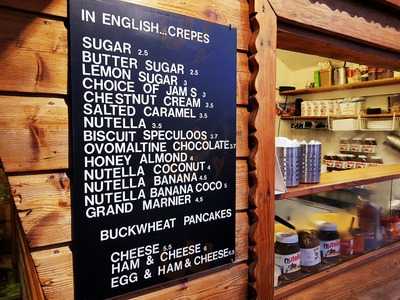 IN ENGLISH...CREPES
SUGAR 2.5
BUTTER SUGAR 2.5
LEMON SUGAR 3
CHOICE OF JAMS 3
CHESTNUT CREAM 3.5
SALTED CARAMEL 3.5
NUTELLA 3.5
BISCUIT SPECULOOS 3.7
OVOMALTINE CHOCOLATE 3.7
HONEY ALMOND 4
NUTELLA COCONUT 4
NUTELLA BANANA 4.5
NUTELLA BANANA COCO 5
GRAND MARNIER 4.5
BUCKWHEAT PANCAKES
CHEESE 5.5
HAM & CHEESE 6
EGG & HAM & CHEESE 6.5
nutella
nutella